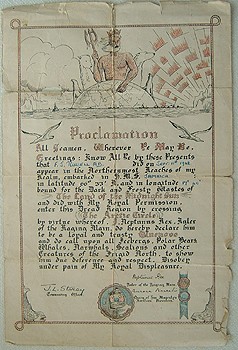 Proclamation
All Seamen, Wherever Ye May Be,
Greetings: Know All Ye by these Presents
that did on
appear in the Northernmost Reaches of my
Realm, embarked in H.M.S.
in latitude and in longitude
bound for the Dark and Frosty Wastes of
The Land of the Midnight Sun
and did with My Royal Permission
enter this Dread Region by crossing
The Arctic Circle
by virtue whereof I, Neptunus Rex, Ruler
of the Raging Main, do hereby declare him
to be a loyal and trusty
and do call upon all Icebergs, Polar Bears
Whales, Narwhals, Sealions and other
Creatures of the Frigid North, to show
him due deference and respect. Disobey
under pain of My Royal Displeasure.
Neptunus Rex
Ruler of the Raging Main
Commanding Officer